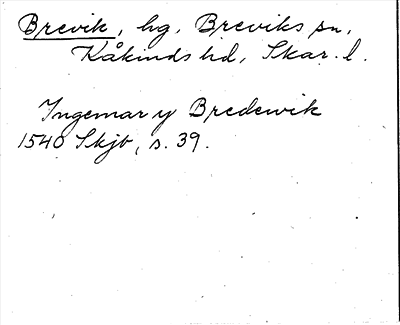 Brevik, hg, Breviks sn,
Kåkinds hd, Skar. l.
Ingemar y Bredewik
1540 Skjb, s. 39.